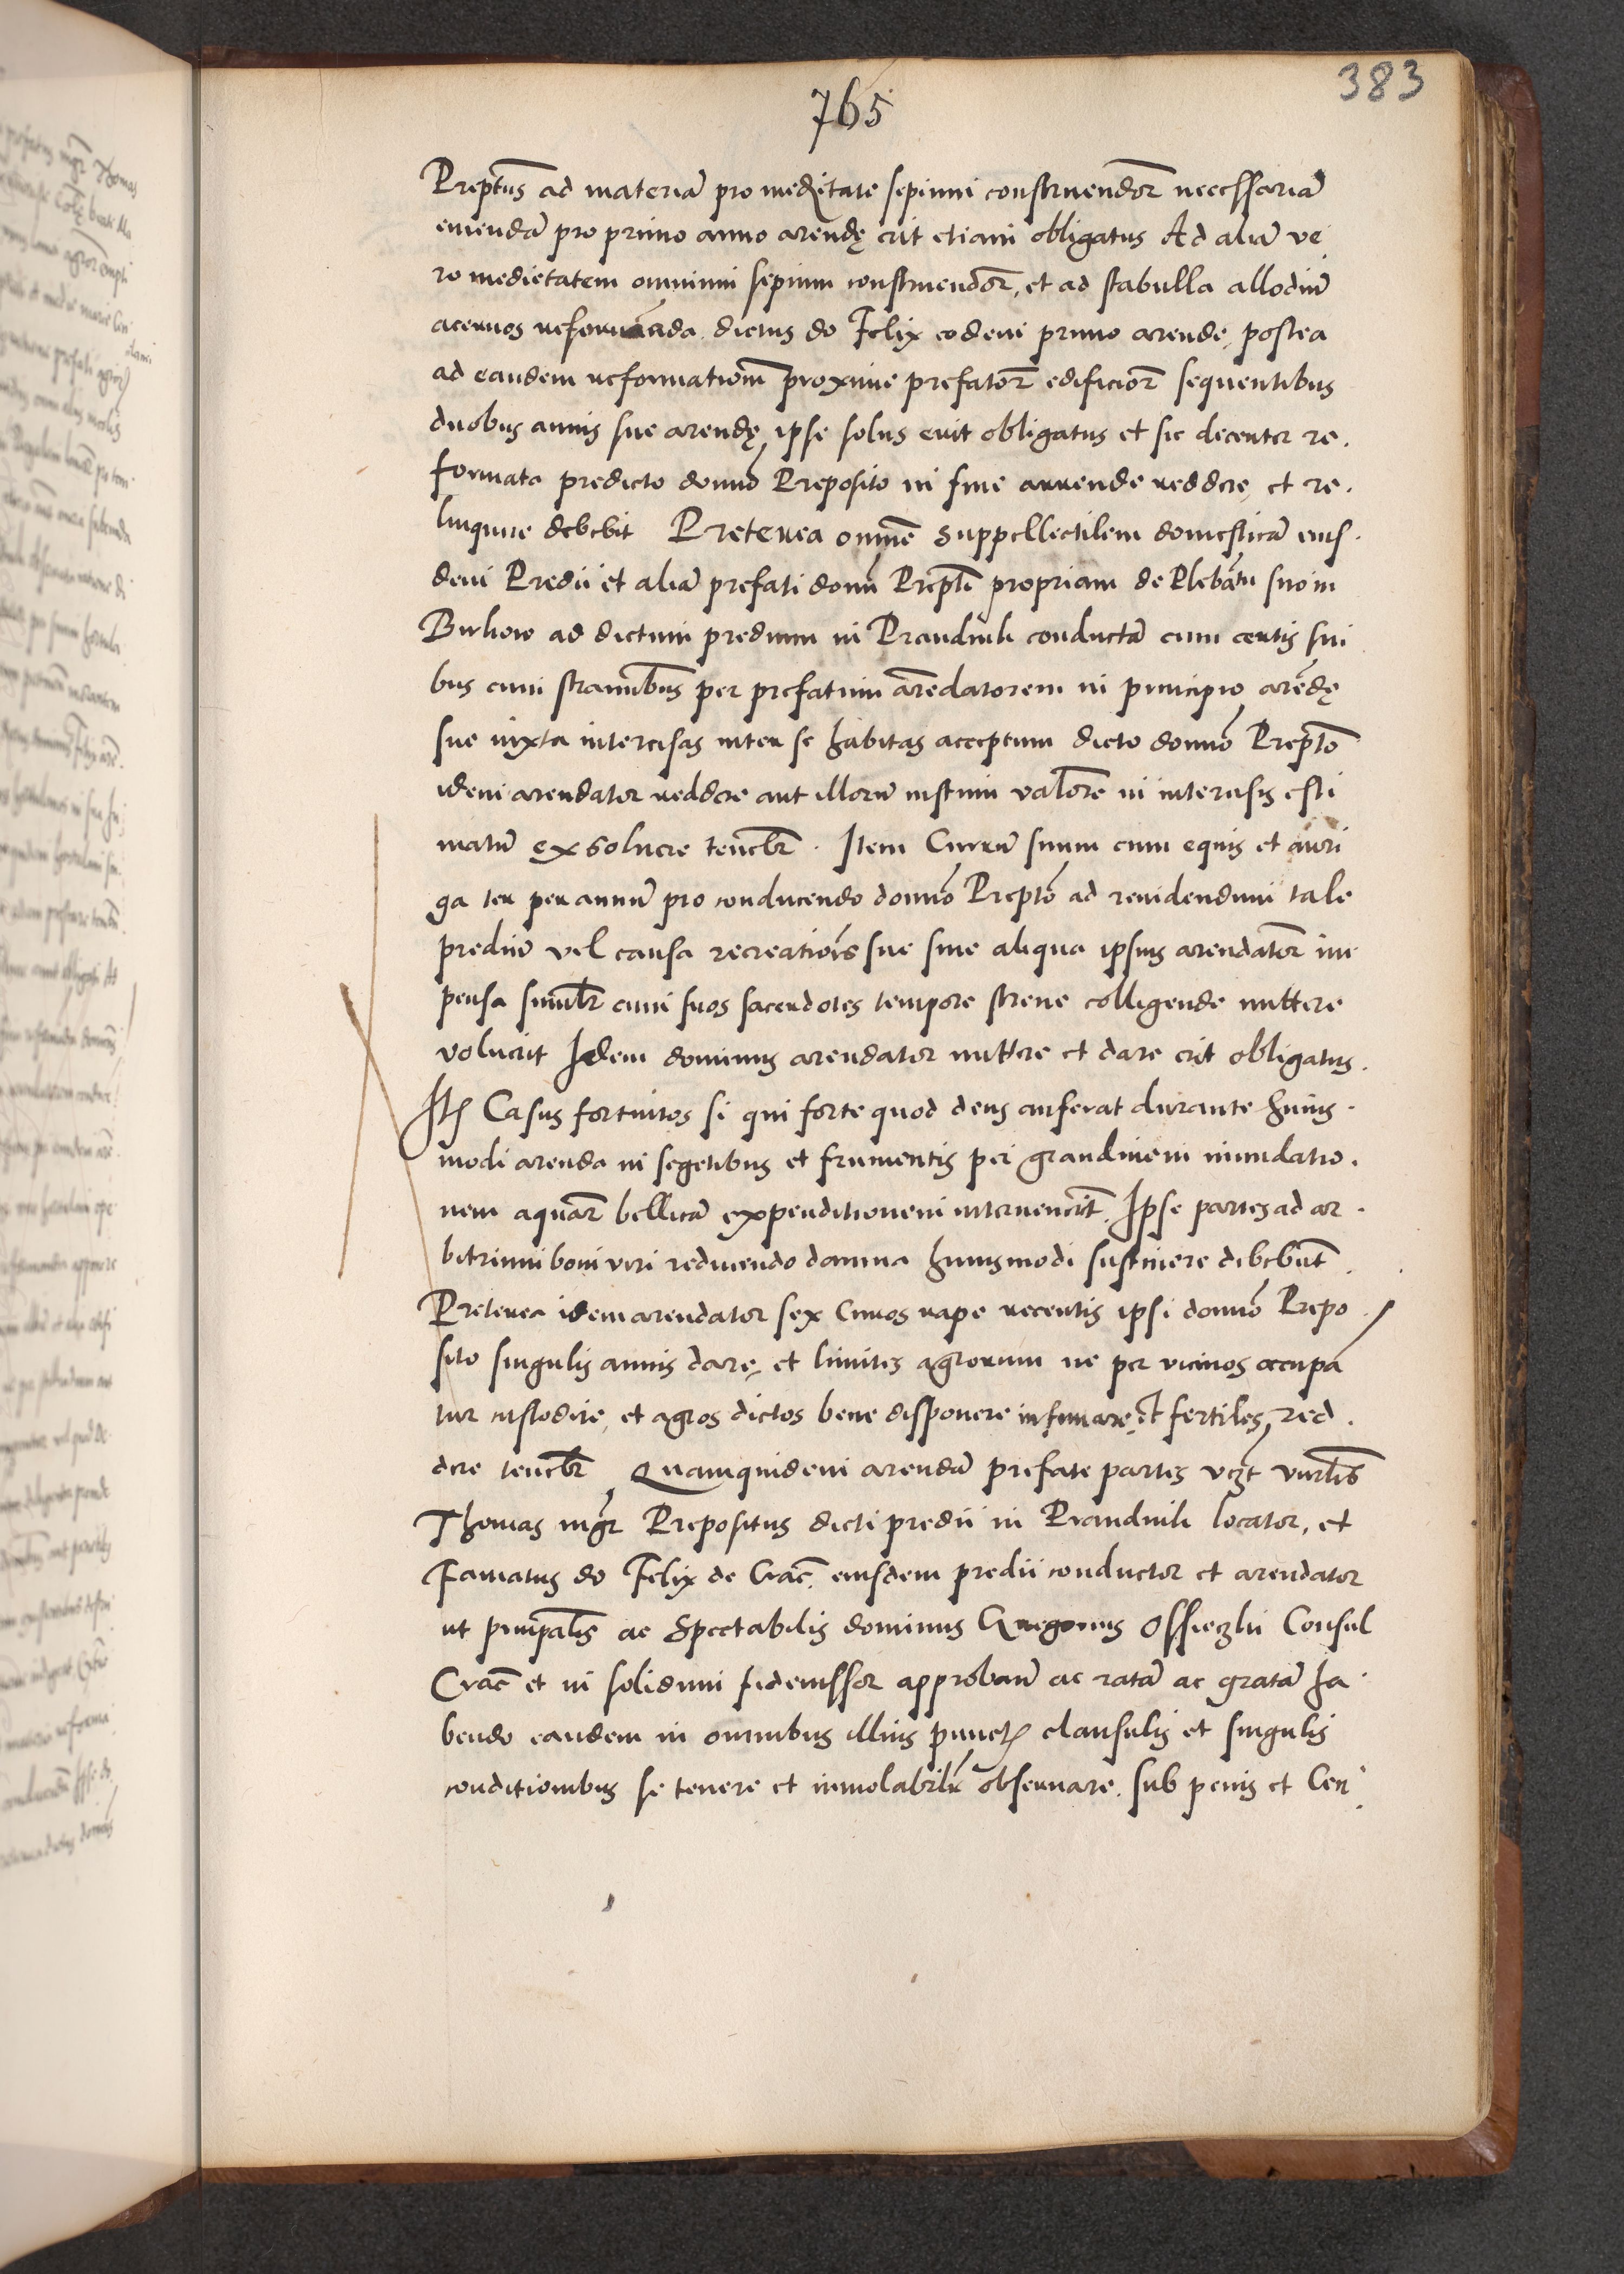 383
765
Prepтus ad materiã pro medietate sepium construendoꝝ necessariã
emendã pro primo anno arendę erit etiam obligatus Ad aliã ve
ro medietatem omnium sepium construendoꝝ, et ad stabulla allodiũ
acervos reformanda dictus do Felix eodem primo arende, postea
ad eandem reformationẽ proxime prefatoꝝ edificioꝝ sequentibus
duobus annis sue arendę ipse solus erit obligatus et sic decenter re.
formata predicto domno Preposito in fine arrende reddere et re.
linquere debebit Preterea omnẽ suppellectilem domesticã eius.
dem Predii et aliã prefati domni Prepti propriam de Plebãtu suo in
Birkow ad dictum predium in Prandnik conductã cum certis sui
bus cum stramibus per prefatum arẽdatorem in principio arẽdę
sue iuxta intercisas inter se habitas acceptum dicto domno Prepto
idem arendator reddere aut illorũ iustum valorẽ in intercisis esti
matũ exsoluere tenebr̃. Item Currũ suum cum equis et auri
ga ter per annũ pro conducendo domno Prepto ad reuidendum tale
prediũ vel causa recreationis sue sine aliqua ipsius arendatoꝝ im
pensa similr̃ cum suos sacerdotes tempore strene colligende mittere
voluerit Idem dominus arendator mittere et dare erit obligatus.
Itẽ Casus fortuitos si qui forte quod deus auferat durante huius.
modi arenda in segetibus et frumentis per grandinem inundatio.
nem aquaꝝ bellicã expenditionem interuenerit. Ipse partes ad ar.
bitrium boni viri reducendo damna huiusmodi sustinere debebũt
Preterea idem arendator sex Currus rape recentis ipsi domno Prepo
sito singulis annis dare, et limites agrorum ne per vicinos occupã
tur custodire, et agros dictos bene disponere infimare et fertiles red.
dere tenebr̃ Quamquidem arendã prefate partes vczt Vnrlis
Thomas mgr̃ Prepositus dicti predii in Prandnik locator, et
Famatus do Felix de Crac̃ eiusdem predii conductor et arendator
ut principalis ac Spectabilis dominus Gregorius Consul
Crac̃ et in solidum fideiussor approbarũ ac ratã ac gratã ha
bendo eandem in omnibus illius punctis clausulis et singulis
conditionibus se tenere et inuiolabilr̃ obseruare. sub penis et Cen